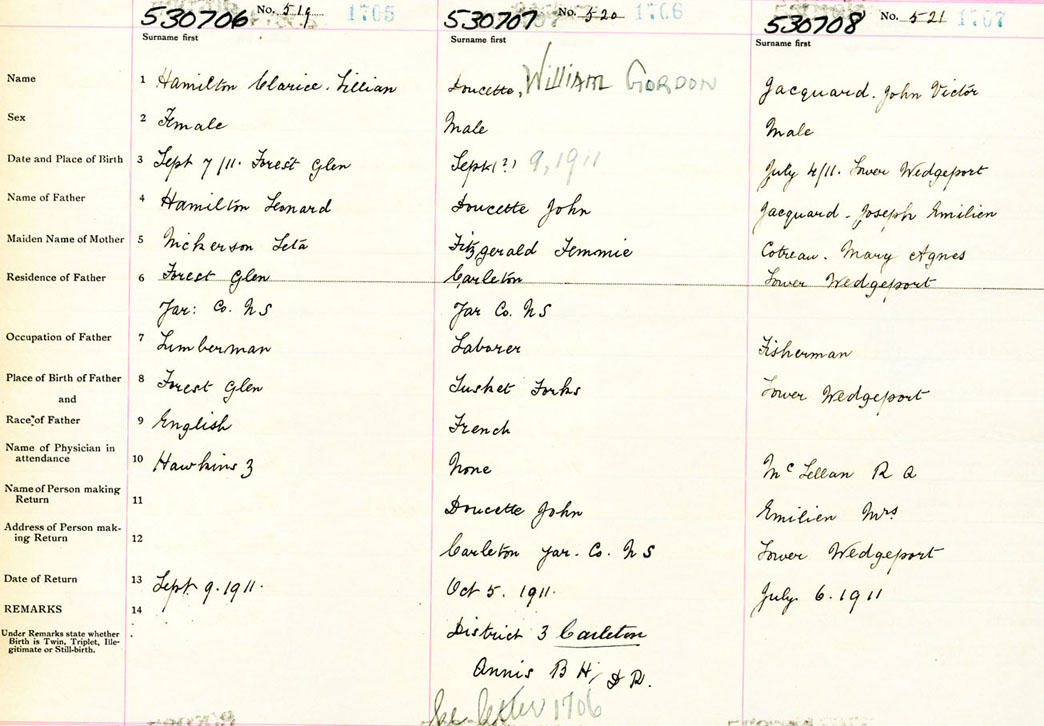 530706 No. 519 1705
530707 No. 520 1706
530708 No. 521 1707
Surname first
Surname first
Surname first
Name 1 Hamilton Clarice. Lillian
Doucette, William GORDON
Jacquard. John Victor
Sex 2 Female
Male
Male
Date and Place of Birth 3 Sept 7/11. Forest Glen
Sept (?) 9, 1911
July 4/11. Lower Wedgeport
Name of Father 4 Hamilton Leonard
Doucette John
Jacquard - Joseph Emilien
Maiden Name of Mother 5 Nickerson Leta
Fitzgerald Jemmie
Cotreau. Mary Agnes
Residence of Father 6 Forest Glen
Carleton
Lower Wedgeport
Yar: Co. N S
Yar Co. N S
Occupation of Father 7 Lumberman
Laborer
Fisherman
Place of Birth of Father 8 Forest Glen
Tusket Forks
Lower Wedgeport
and
Race of Father 9 English
French
Name of Physician in
attendance 10 Hawkins 3
None
Mc Lellan R A
Name of Person making
Return 11
Doucette John
Emilien Mrs
Address of Person mak-
ing Return 12
Carleton Yar. Co. N S
Lower Wedgeport
Date of Return 13 Sept 9. 1911.
Oct 5. 1911.
July 6. 1911
REMARKS 14
Under Remarks state whether
Birth is Twin, Triplet, Ille-
gitimate or Still-birth.
District 3 Carleton
Annis B H, D R.
See 1706